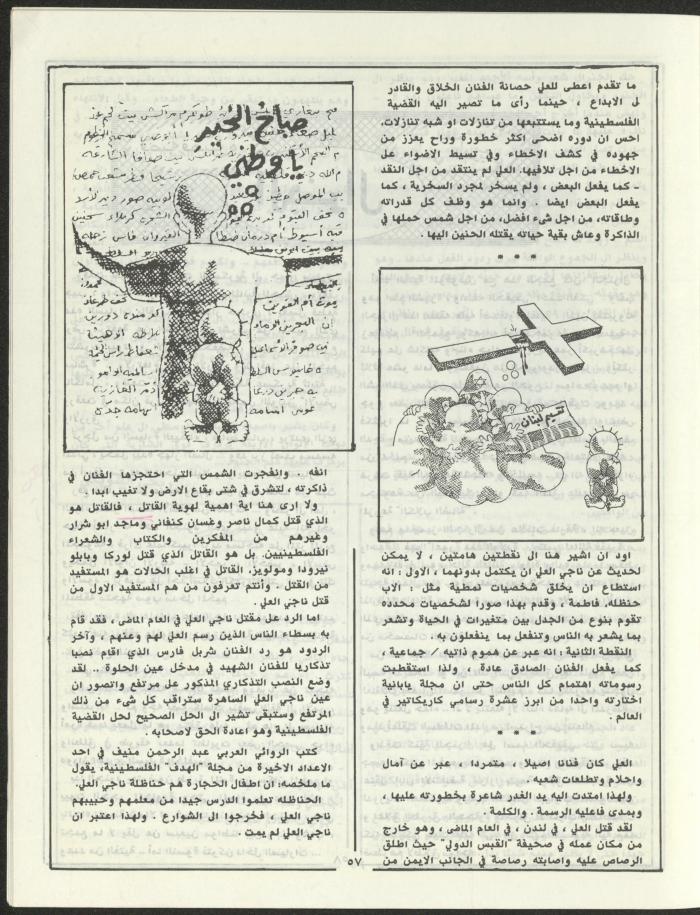 ما تقدم اعطى للعلي حصانة الفنان الخلاق والقادر
لى الابداع ، حينما رأى ما تصير اليه القضية
الفلسطينية وما يستتبعها من تنازلات او شبه تنازلات.
احس ان دوره اضحى اكثر خطورة وراح يعزز من
جهوده في كشف الاخطاء وفي تسيط الاضواء عل
الاخطاء من اجل تلافيها. العلي لم ينتقد من اجل النقد
- كما يفعل البعض ، ولم يسخر لمجرد السخرية ، كما
يفعل البعض ايضا . وانما هو وظف كل قدراته
وطاقاته، من اجل شىء افضل، من اجل شمس حملها في
الذاكرة وعاش بقية حياته يقتله الحنين اليها.
* * *
تقسيم لبنان
اود ان اشير هنا ال نقطتين هامتين ، لا يمكن
لحديث عن ناجي العلي ان يكتمل بدونهما ، الاول : انه
استطاع ان يخلق شخصيات نمطية مثل : الاب
حنظله. فاطمة ، وقدم بهذا صورا لشخصيات محدده
تقوم بنوع من الجدل بين متغيرات في الحياة وتشعر
بما يشعر به الناس وتنفعل بما ينفعلون به .
النقطة الثانية : انه عبر عن هموم ذاتيه / جماعية ،
كما يفعل الفنان الصادق عادة ، ولذا استقطبت
رسوماته اهتمام كل الناس حتى ان مجلة يابانية
اختارته واحدا من ابرز عشرة رسامي كاريكاتير في
العالم .
* * *
العلي كان فنانا اصيلا ، متمردا ، عبر عن آمال
واحلام وتطلعات شعبه .
ولهذا امتدت اليه يد الغدر شاعرة بخطورته عليها ،
وبمدى فاعليه الرسمة . والكلمة .
لقد قتل العلي ، في لندن ، في العام الماضى ، وهو خارج
من مكان عمله في صحيفة "القبس الدولي" حيث اطلق
الرصاص عليه واصابته رصاصة في الجانب الايمن من
صباح الخير
يا وطني
انفه . وانفجرت الشمس التي احتجزها الفنان في
ذاكرته ، لتشرق في شتى بقاع الارض ولا تغيب ابدا .
ولا ارى هنا اية اهمية لهوية القاتل ، فالقاتل هو
الذي قتل كمال ناصر وغسان كنفاني وماجد ابو شرار
وغيرهم من المفكرين والكتاب والشعراء
الفلسطينيين. بل هو القاتل الذي قتل لوركا وبابلو
نيرودا ومولويز. القاتل في اغلب الحالات هو المستفيد
من القتل . وأنتم تعرفون من هم المستفيد الاول من
قتل ناجي العلي.
اما الرد عل مقتل ناجي العلي في العام الماضى ، فقد قام
به بسطاء الناس الذين رسم العلي لهم وعنهم ، وآخر
الردود هو رد الفنان شربل فارس الذي اقام نصبا
تذكاريا للفنان الشهيد في مدخل عين الحلوة .. لقد
وضع النصب التذكاري المذكور عل مرتفع واتصور ان
عين ناجي العلي الساهرة ستراقب كل شىء من ذلك
المرتفع وستبقى تشير ال الحل الصحيح لحل القضية
الفلسطينية وهو اعادة الحق لاصحابه .
كتب الروائي العربي عبد الرحمن منيف في احد
الاعداد الاخيرة من مجلة "الهدف" الفلسطينية، يقول
ما ملخصه: ان اطفال الحجارة هم حناظلة ناجي العلي.
الحناظله تعلموا الدرس جيدا من معلمهم وحبيبهم
ناجي العلي ، فخرجوا ال الشوارع . ولهذا اعتبر ان
ناجي العلي لم يمت .
٥٧